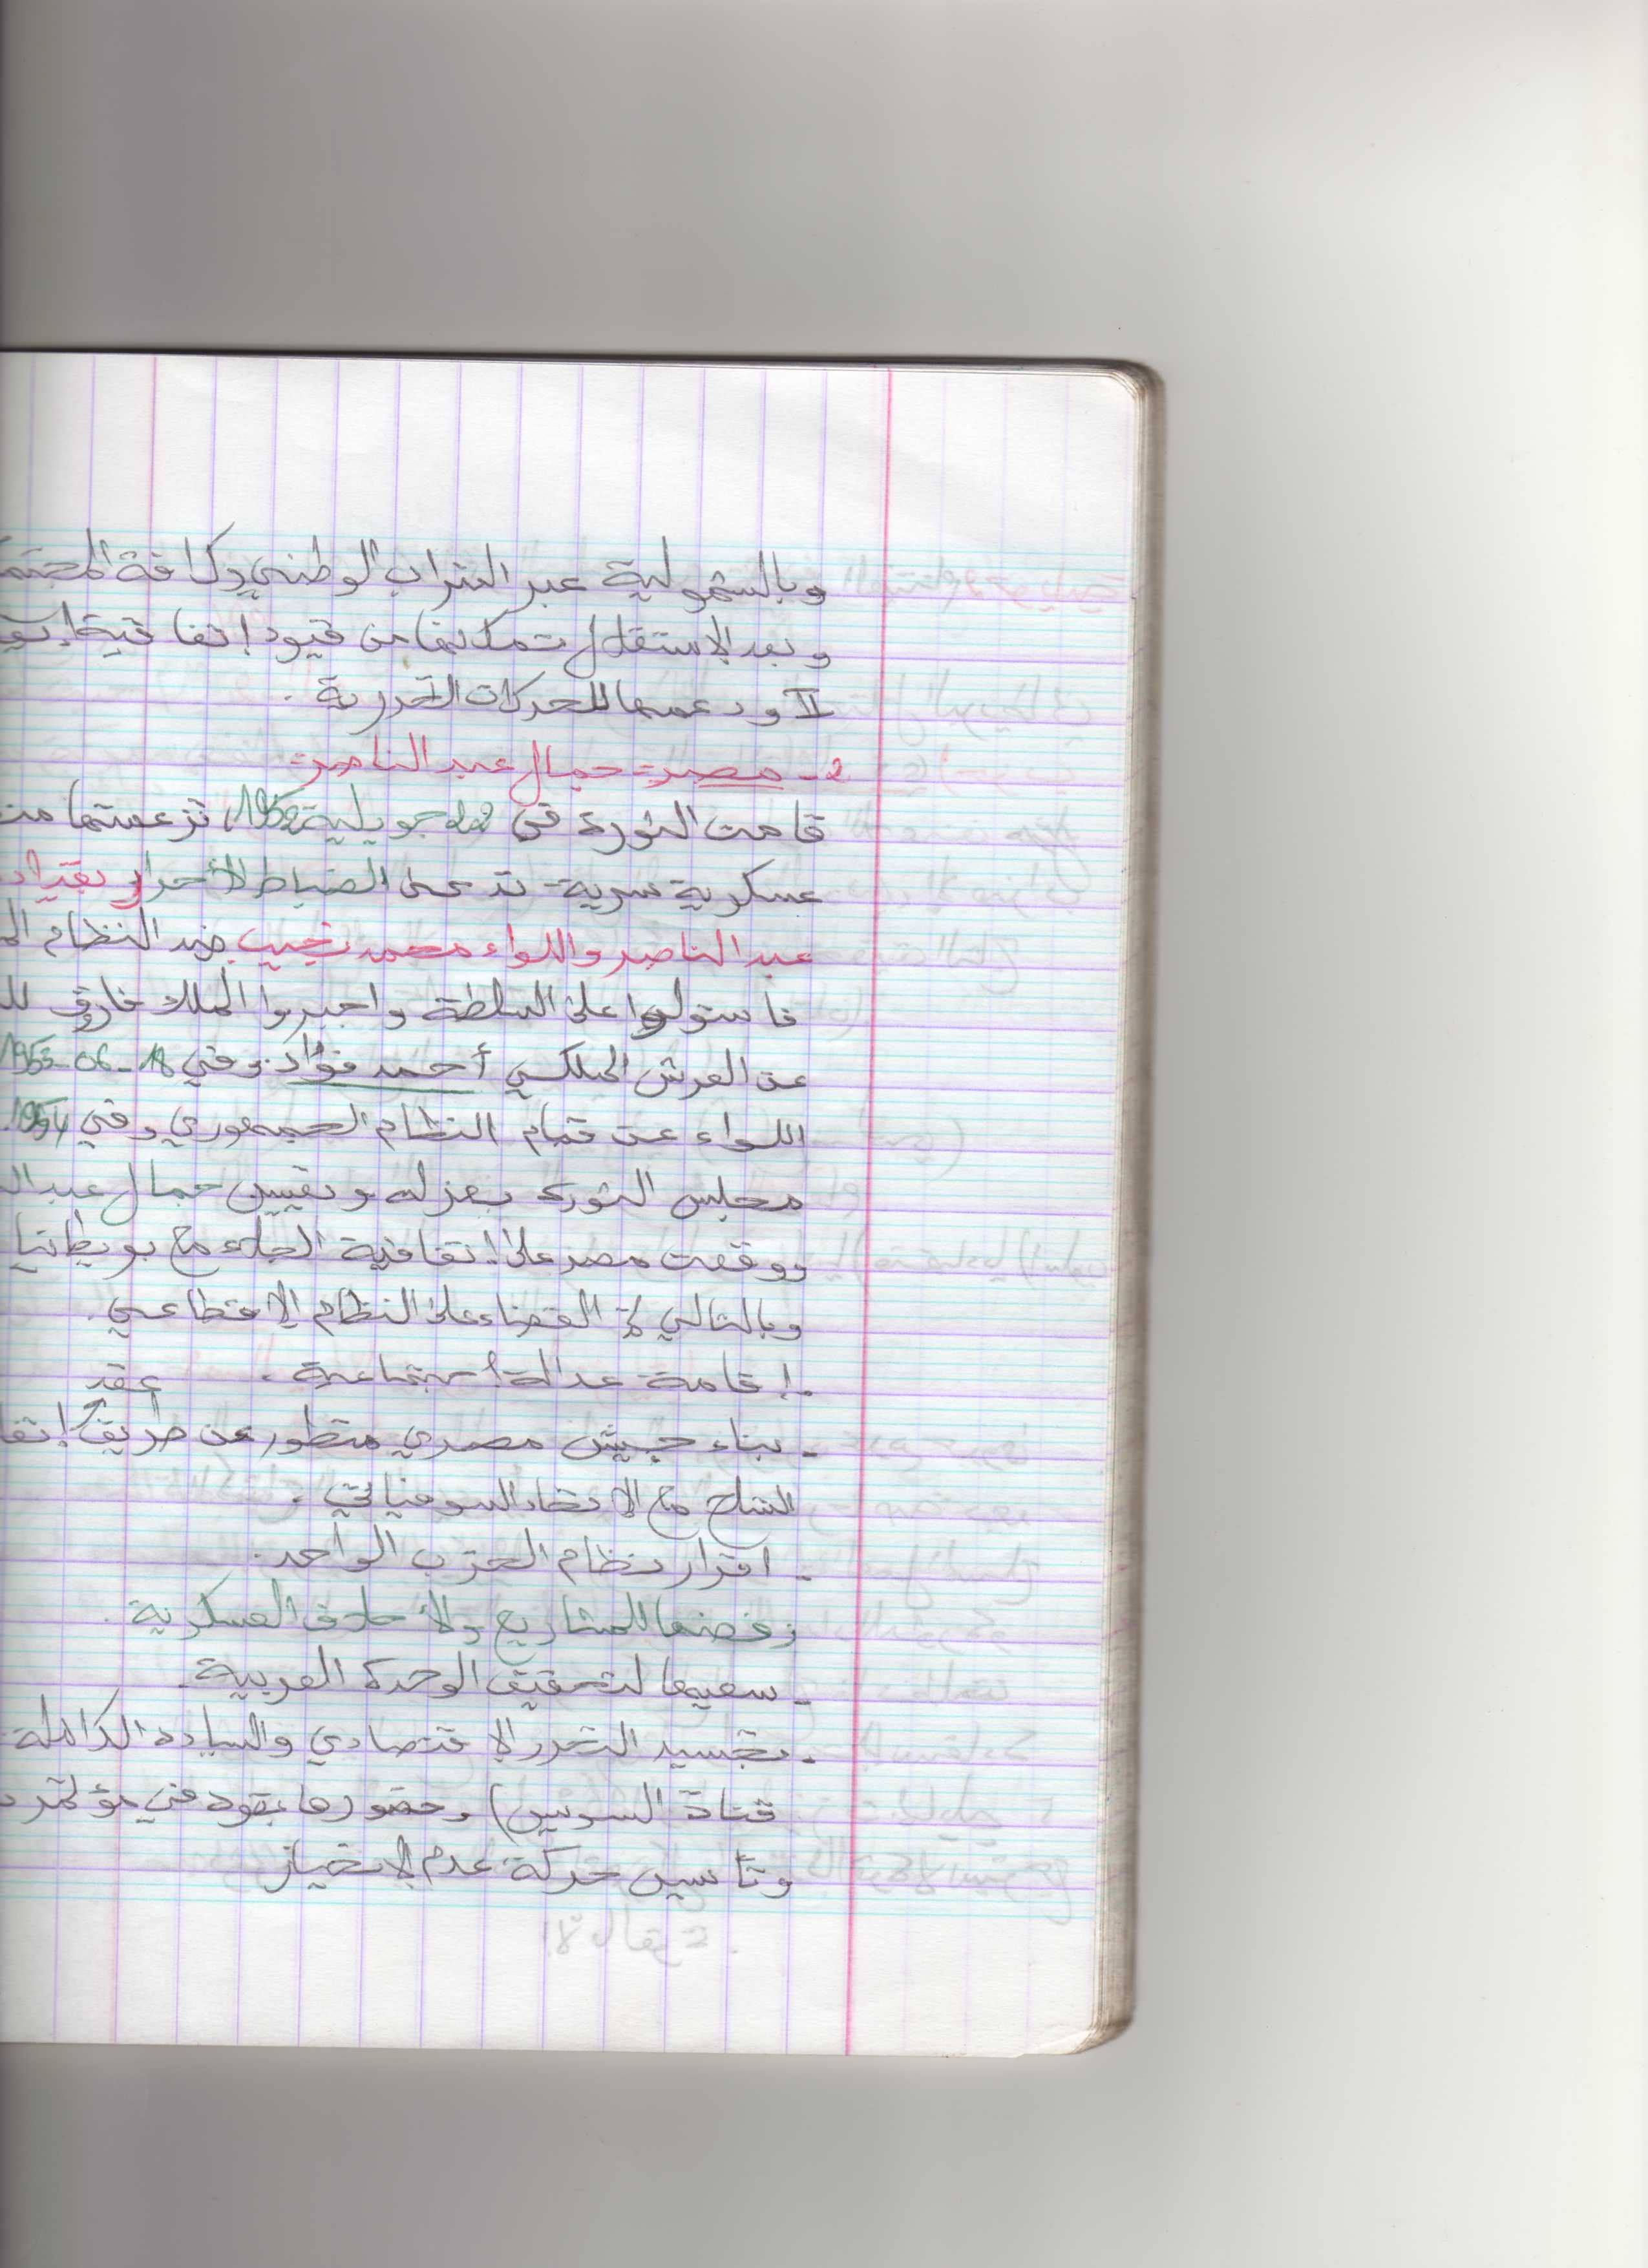 وبالشمولية عبر التراب الوطني وكافة المجتم
وبعد الإستقلال تمكنها من قيود إتفاقية إيف
II ودعمها للحركات التحررية .
2- مصر- جمال عبد الناصر-
قامت الثورة في 22 جويلية 1952، تزعمتها من
عسكرية سرية- تدعى الضباط الأحرار بقياد
عبد الناصر واللواء محمد نجيب ضد النظام الم
فاستولوا على السلطة واجبروا الملك فاروق لل
عن العرش الملكي أحمد فؤاد. وفي 18-06-1953
اللواء عن قيام النظام الجمهوري وفي 1954.
مجلس الثورة بعزله وتعيين جمال عبد ال
ووقعت مصر على إتفاقية الجلاء مع بريطانيا
وبالتالي تم القضاء على النظام الإقطاعي.
- إقامة عدالة إجتماعية .
- بناء جيش مصري متطور عن طريق عقد إتفا
السلاح مع الاتحاد السوفياتي .
- اقرار نظام الحزب الواحد.
رفضها للمشاريع والأحلاف العسكرية .
- سعيها لتحقيق الوحدة العربية.
- تجسيد التحرر الإقتصادي والسيادة الكاملة
قناة السويس) وحضورها بقوة في مؤتمر
وتأسيس حركة عدم الإنحياز